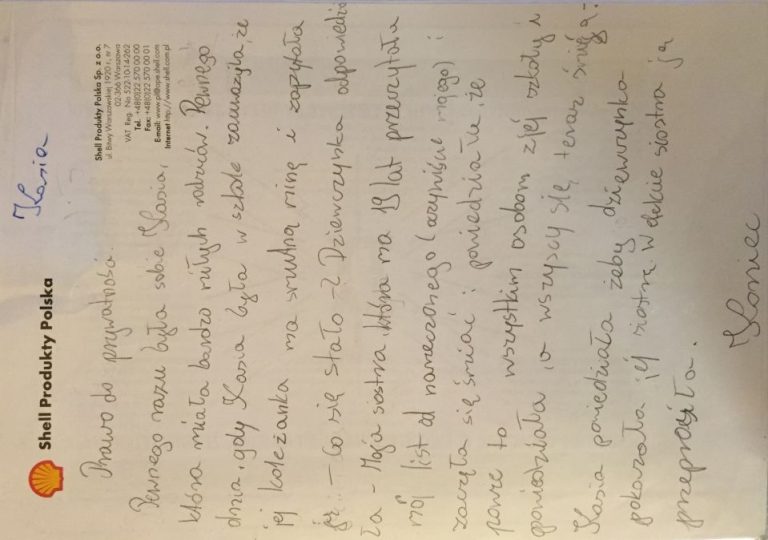 Kasia
Shell Produkty Polska
Shell Produkty Polska Sp. z o.o.
ul. Bitwy Warszawskiej 1920 r., nr 7
02-366 Warszawa
VAT Reg. No 522-10-14-262
Tel. +48(0)22 570 00 00
Fax: +48(0)22 570 00 01
Email: www.pl@ope.shell.com
Internet http://www.shell.com.pl
Prawo do prywatności.
Pewnego razu była sobie Kasia,
która miała bardzo miłych rodziców. Pewnego
dnia, gdy Kasia była w szkole zauważyła, że
jej koleżanka ma smutną minę i zapytała
ją... – Co się stało –? Dziewczynka odpowiedzia
ła – Moja siostra, która ma 19 lat przeczytała
mój list od narzeczonego (oczywiście mojego) i
zaczęła się śmiać i powiedziała, że
powie to wszystkim osobom z jej szkoły i
powiedziała, a wszyscy się teraz śmieją.
Kasia powiedziała żeby dziewczynka
pokazała jej siostrę. W efekcie siostra ją
przeprosiła.
Koniec